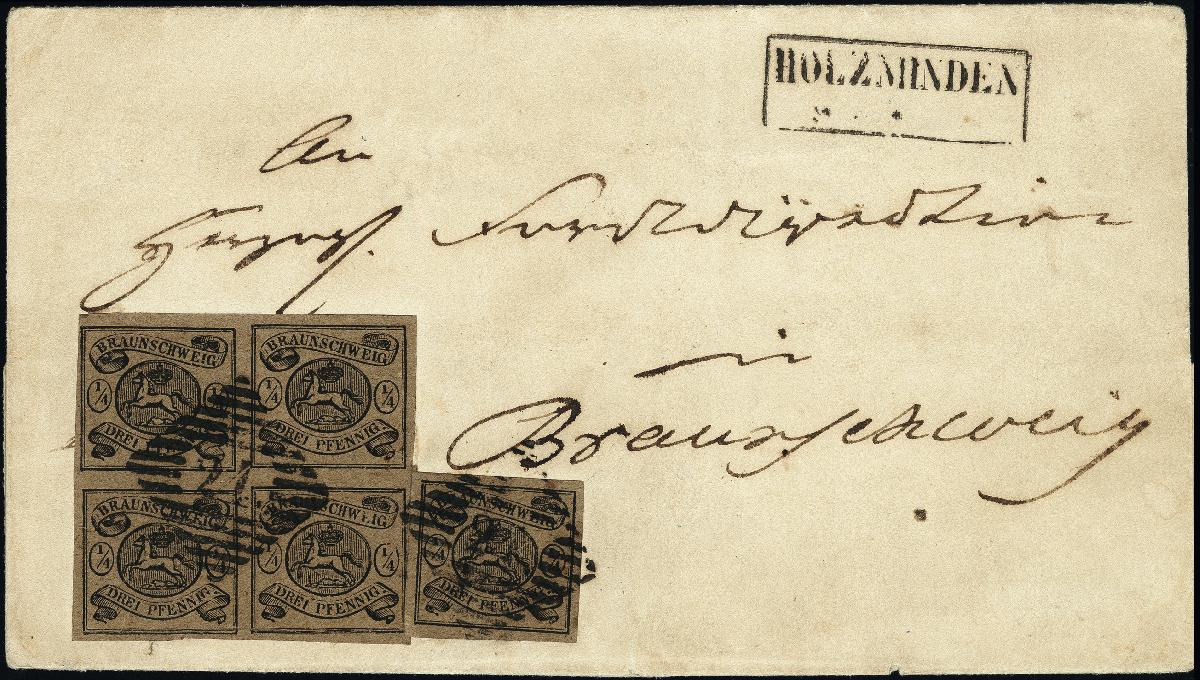 HOLZMINDEN
An
Herzogl.
in
Braunschweig
BRAUNSCHWEIG
1/4 1/4
DREI PFENNIG
BRAUNSCHWEIG
1/4 1/4
DREI PFENNIG
BRAUNSCHWEIG
1/4 1/4
DREI PFENNIG
BRAUNSCHWEIG
1/4 1/4
DREI PFENNIG
BRAUNSCHWEIG
1/4 1/4
DREI PFENNIG